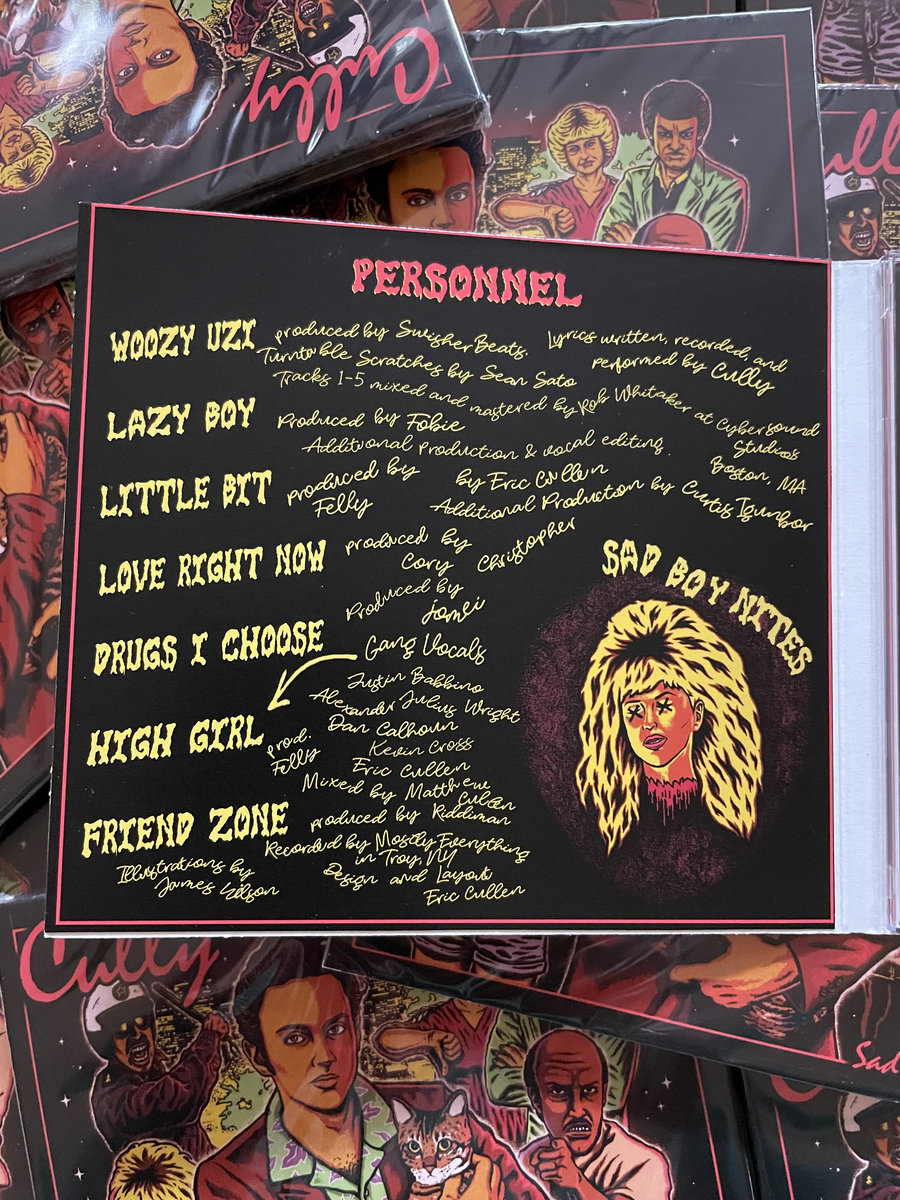 Cully
Cully
PERSONNEL
WOOZY UZI
produced by SwisherBeats.
Turntable Scratches by Sean Sato
Lyrics written, recorded, and
performed by Cully
Tracks 1-5 mixed and mastered by Rob Whitaker at Cybersound
Studios
Boston, MA
LAZY BOY
Produced by Fobie
Additional Production & vocal editing
by Eric Cullen
LITTLE BIT
produced by
Felly
Additional Production by Curtis Igunbor
LOVE RIGHT NOW
produced by
Cory Christopher
DRUGS I CHOOSE
Produced by
Gang Vocals
Justin Babbino
Alexander Julius Wright
Dan Calhoun
Kevin Cross
Eric Cullen
HIGH GIRL
prod.
Felly
Mixed by Matthew
Cullen
FRIEND ZONE
produced by Riddiman
Recorded by Mostly Everything
in Troy, NY
Illustrations by
James
Design and Layout
Eric Cullen
SAD BOY NITES
Cully
Sad